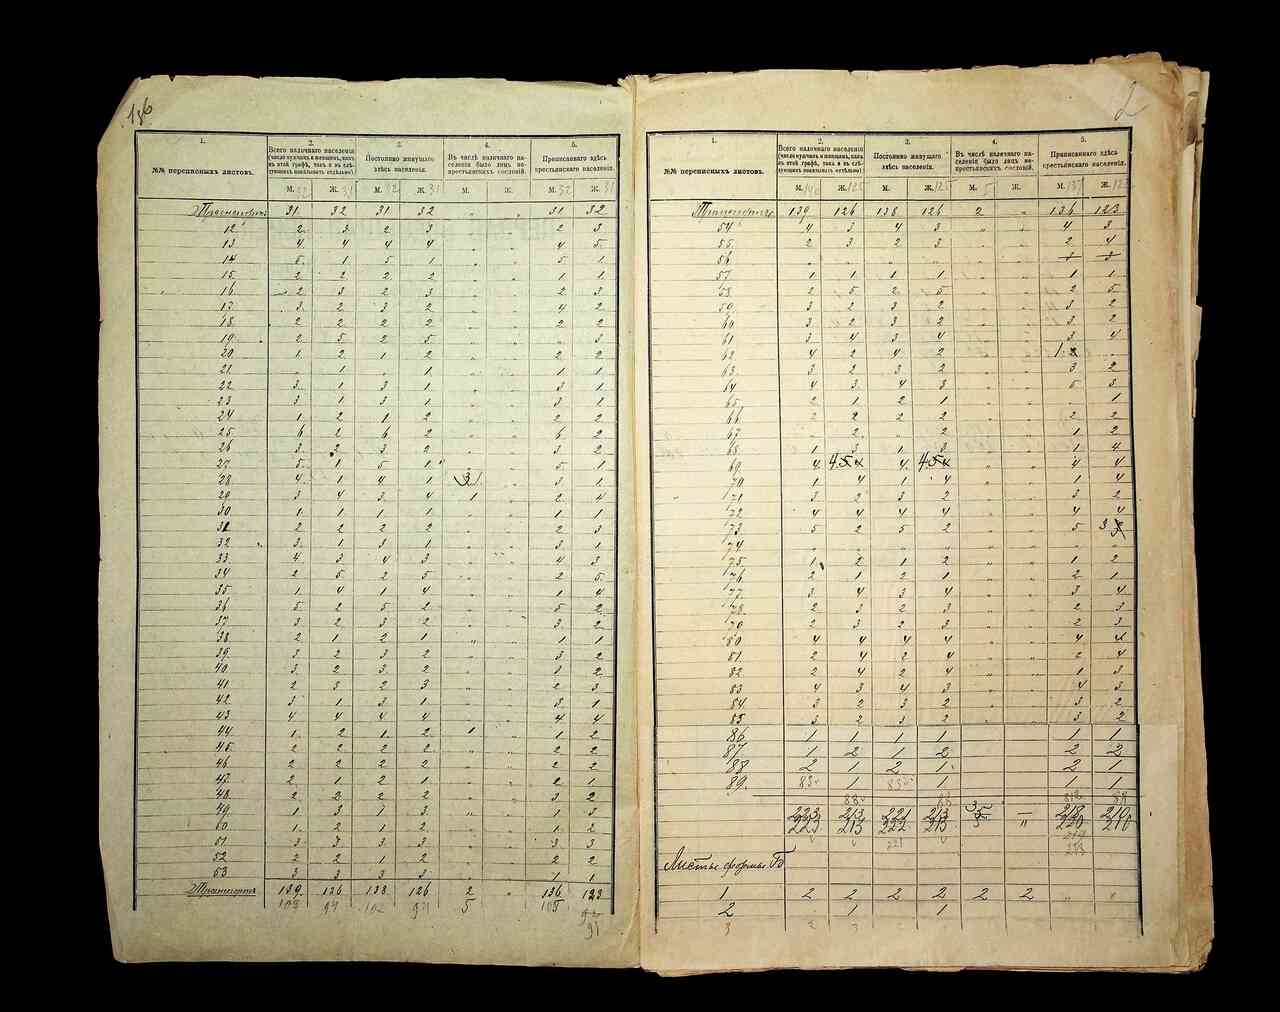 136
1.
№№ переписныхъ листовъ.
2.
Всего наличнаго населенія
(число мужчинъ и женщинъ, какъ въ этой графѣ, такъ и въ слѣдующихъ показывать отдѣльно)
3.
Постоянно живущаго здѣсь населенія.
4.
Въ числѣ наличнаго населенія было лицъ некрестьянскихъ сословій.
5.
Приписаннаго здѣсь крестьянскаго населенія.
м. 32 ж. 31 м. 32 ж. 31 м. ж. м. 32 ж. 31
Транспортъ 31 32 31 32 „ „ 31 32
12 2 3 2 3 „ „ 2 3
13 4 4 4 4 „ „ 4 5
14 5 1 5 1 „ „ 5 1
15 2 2 2 2 „ „ 1 1
16 2 3 2 3 „ „ 2 3
17 3 2 3 2 „ „ 4 2
18 2 2 2 2 „ „ 2 2
19 2 5 2 5 „ „ „ 3
20 1 2 1 2 „ „ 2 2
21 „ 1 „ 1 „ „ 1 1
22 3 1 3 1 „ „ 3 1
23 3 1 3 1 „ „ 3 1
24 1 2 1 2 „ „ 2 2
25 6 2 6 2 „ „ 6 2
26 3 2 3 2 „ „ 3 2
27 5 1 5 1 „ „ 5 1
28 4 1 4 1 31 „ 3 1
29 3 4 3 4 1 „ 2 4
30 1 1 1 1 „ „ 1 1
31 2 2 2 2 „ „ 2 3
32 3 1 3 1 „ „ 3 1
33 4 3 4 3 „ „ 4 3
34 2 5 2 5 „ „ 2 5
35 1 4 1 4 „ „ 1 4
36 5 2 5 2 „ „ 5 2
37 3 2 3 2 „ „ 3 2
38 2 1 2 1 „ „ 1 1
39 3 2 3 2 „ „ 3 2
40 3 2 3 2 „ „ 3 2
41 2 3 2 3 „ „ 2 3
42 3 1 3 1 „ „ 3 1
43 4 4 4 4 „ „ 4 4
44 1 2 1 2 1 „ 1 2
45 2 2 2 2 „ „ 2 2
46 2 2 2 2 „ „ 2 2
47 2 1 2 1 „ „ 2 1
48 2 2 2 2 „ „ 3 2
49 1 3 1 3 „ „ 1 3
50 1 2 1 2 „ „ 1 2
51 3 3 3 3 „ „ 3 3
52 2 2 1 2 „ „ 2 2
53 3 3 3 3 „ „ 1 1
Транспортъ 139 126 138 126 2 „ 136 123
103 94 102 94 5 105 92
91
2
1.
№№ переписныхъ листовъ.
2.
Всего наличнаго населенія
(число мужчинъ и женщинъ, какъ въ этой графѣ, такъ и въ слѣдующихъ показывать отдѣльно)
3.
Постоянно живущаго здѣсь населенія.
4.
Въ числѣ наличнаго населенія было лицъ некрестьянскихъ сословій.
5.
Приписаннаго здѣсь крестьянскаго населенія.
м. 140 ж. 125 м. ж. 125 м. 5 ж. м. 137 ж. 122
Транспортъ 139 126 138 126 2 „ 136 123
54 4 3 4 3 „ „ 4 3
55 2 3 2 3 „ „ 2 4
56 „ „ „ „ „ „ 3
57 1 1 1 1 „ „ 1 1
58 2 5 2 5 „ „ 2 5
59 3 2 3 2 „ „ 3 2
60 3 2 3 2 „ „ 3 2
61 3 4 3 4 „ „ 3 4
62 4 2 4 2 „ „ 1 „
63 3 2 3 2 „ „ 3 2
64 4 3 4 3 „ „ 5 3
65 2 1 2 1 „ „ „ 1
66 2 2 2 2 „ „ 2 2
67 „ 2 „ 2 „ „ 1 2
68 1 3 1 3 „ „ 1 4
69 4 4 5 4 4 4 5 4 „ „ 4 4
70 1 4 1 4 „ „ 1 4
71 3 2 3 2 „ „ 3 2
72 4 4 4 4 „ „ 4 4
73 5 2 5 2 „ „ 5 3
74 „ „ „ „ „ „ „ „
75 1 2 1 2 „ „ 1 2
76 2 1 2 1 „ „ 2 1
77 3 4 3 4 „ „ 3 4
78 2 3 2 3 „ „ 2 3
79 2 3 2 3 „ „ 2 3
80 4 4 4 4 „ „ 4 4
81 2 4 2 4 „ „ 2 4
82 2 4 2 4 „ „ 1 3
83 4 3 4 3 „ „ 4 3
84 3 2 3 2 „ „ 3 2
85 3 2 3 2 „ „ 3 2
86 1 1 1 1 1 1
87 1 2 1 2 2 2
88 2 1 2 1 2 1
89 83 1 83 1 1 1
88 88 88
223 213 221 213 35 — 218 210
223 213 222 213 5 „ 220 210
221
Листы формы Б
1 2 2 2 2 2 2 „ „
2 1 1
3 2 3 2 3